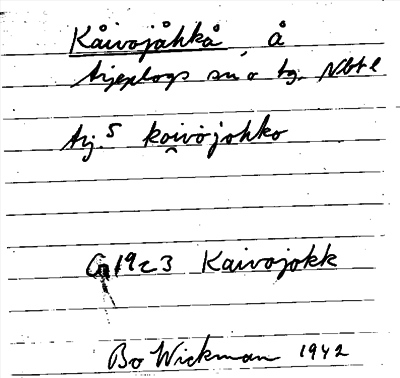 Kåivojåhkå å
Arjeplogs sn o tg. Nbt l
Arj. S koivojohko
G 1923 Kaivojokk
Bo Wickman 1942